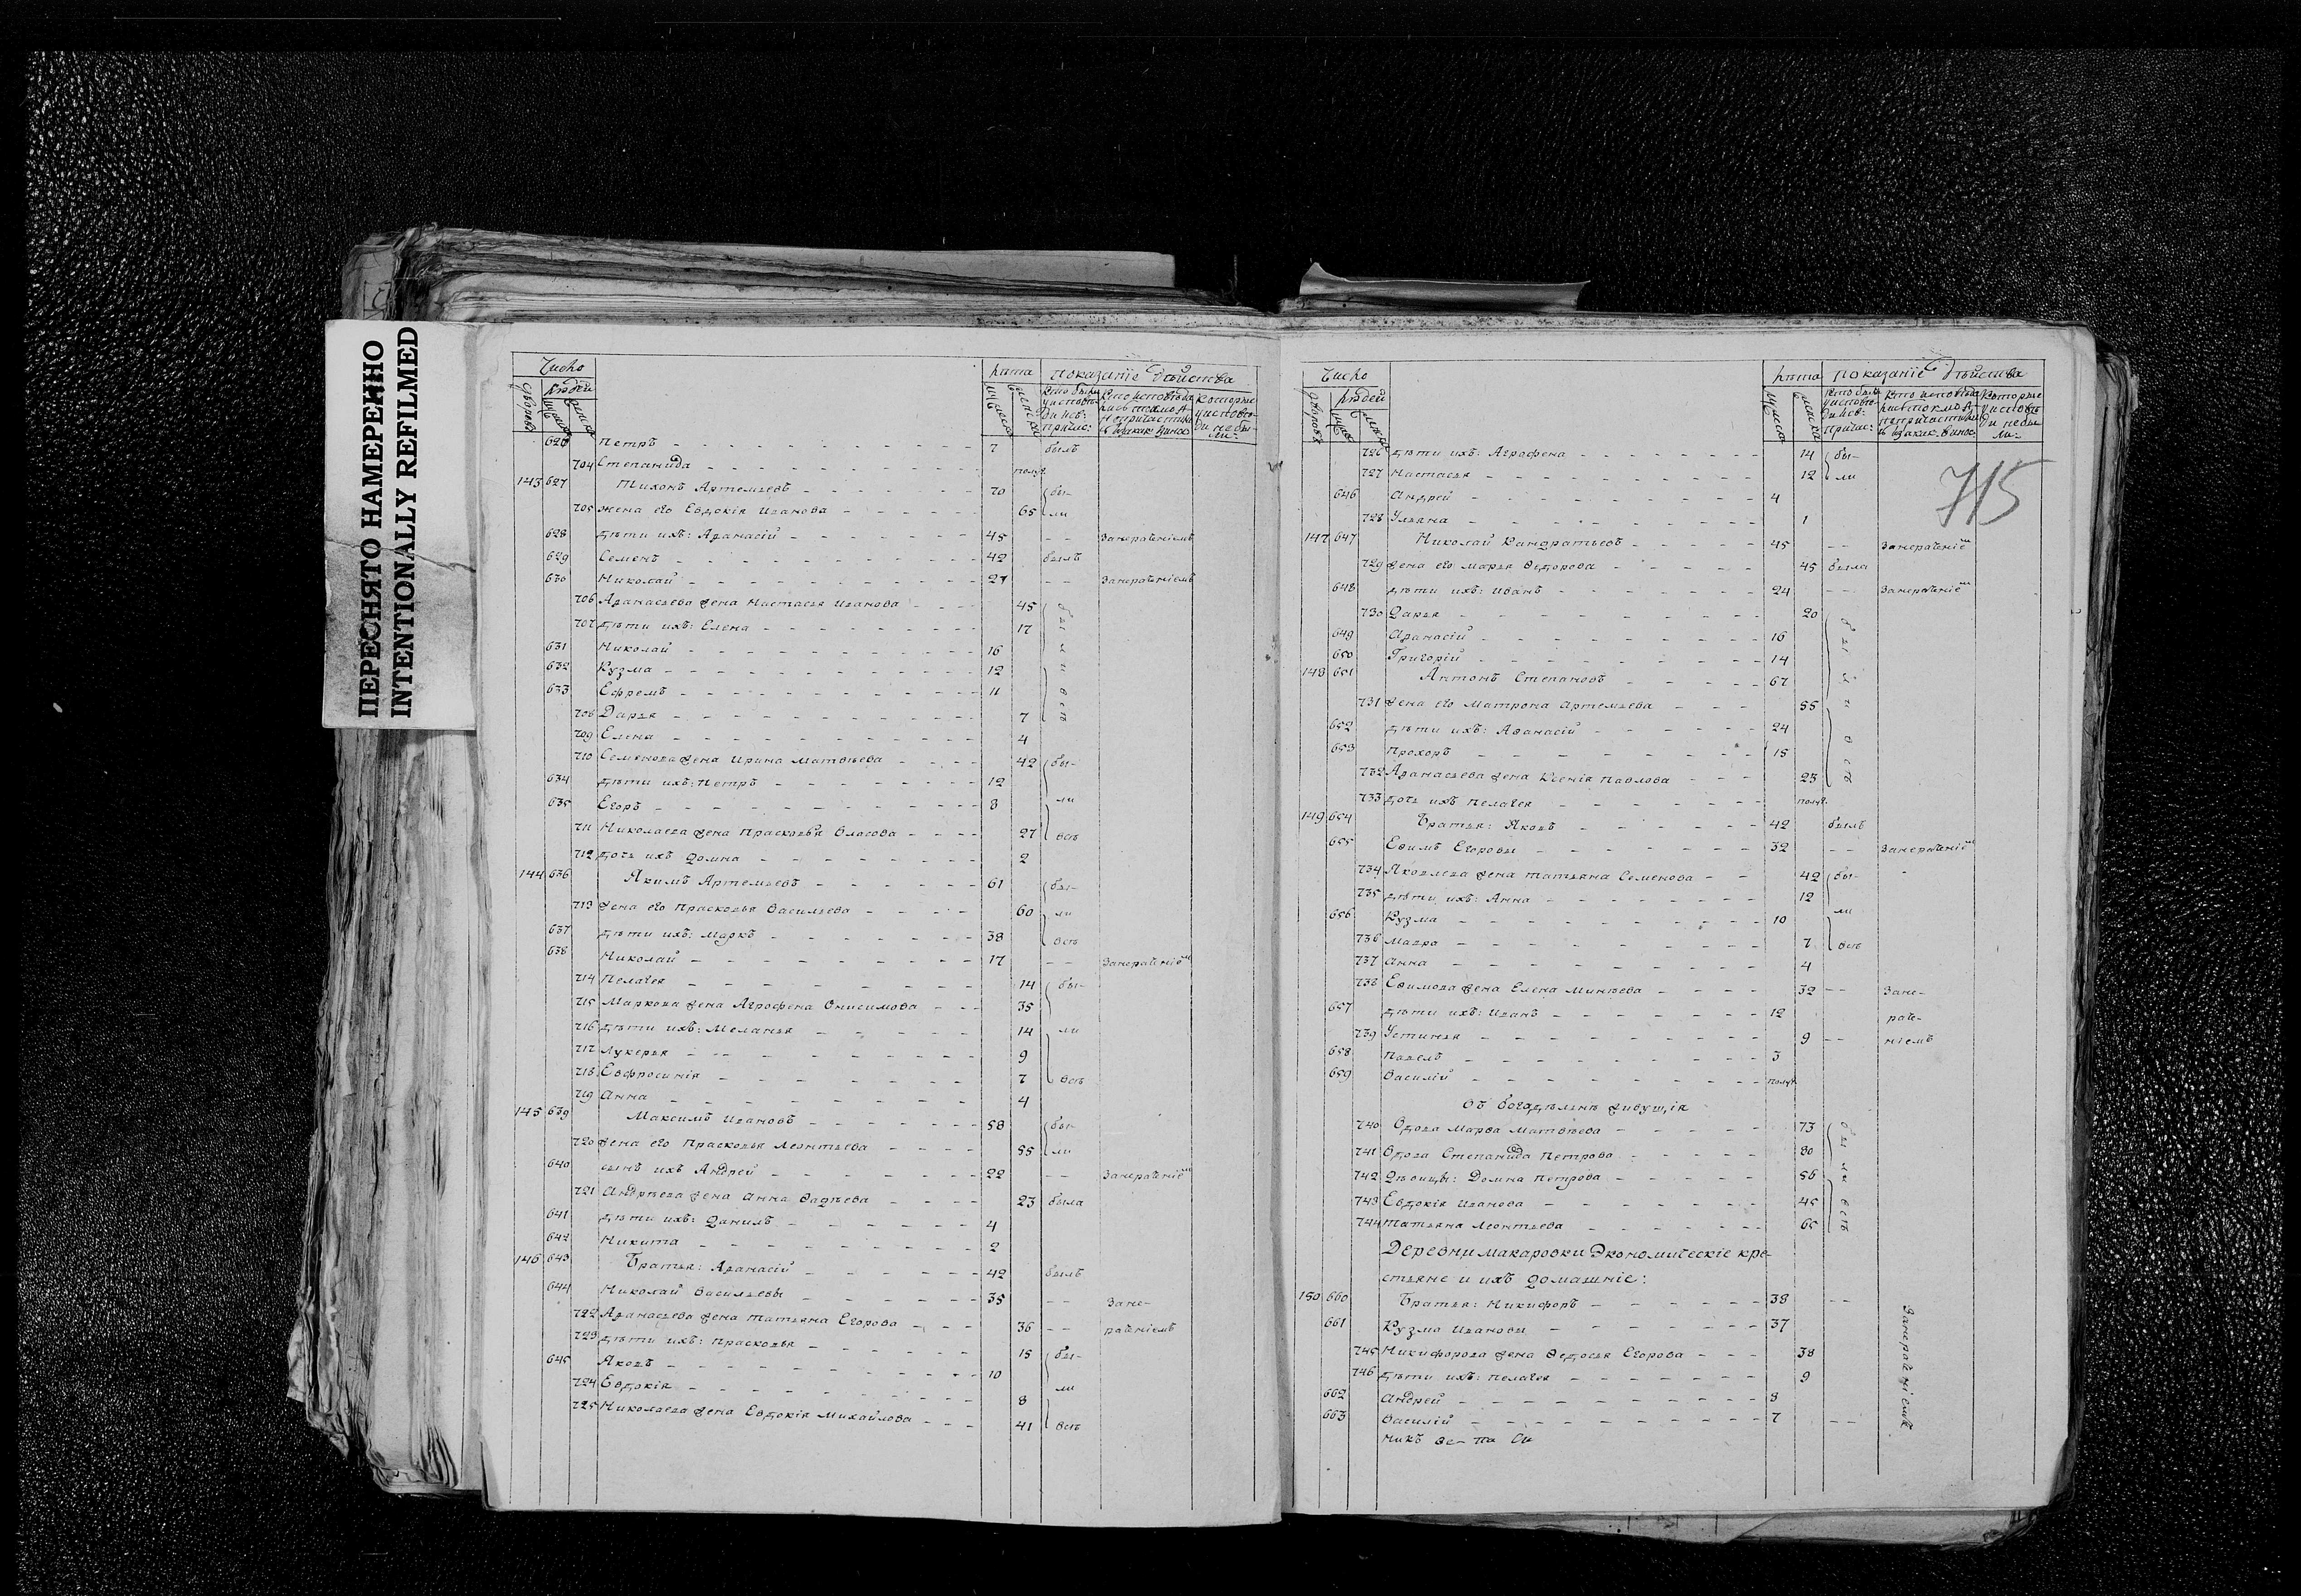 ПЕРЕСНЯТО НАМЕРЕННО
INTENTIONALLY REFILMED
Число лѣта показаніе дѣйства
дворовъ людей
626 Петръ 7 былъ
704 Степанида полуг.
143 627 Тихонъ Артемьевъ 70 бы-
705 жена его Евдокія Иванова 65 ли
628 дѣти ихъ: Аѳанасій 45 -- Занераченіемъ
629 Семенъ 42 былъ
630 Николай 27 -- Занераченіемъ
706 Аѳанасьева жена Настасья Иванова 45 бы
707 дѣти ихъ: Елена 17
631 Николай 16 л
632 Кузма 12 и
633 Ефремъ 11 всѣ
708 Дарья 7
709 Елена 4
710 Семенова жена Ирина Матвѣева 42 бы-
634 дѣти ихъ: Петръ 12
635 Егоръ 8 ли
711 Николаева жена Прасковья Власова 27 всѣ
712 дочь ихъ Домна 2
144 636 Якимъ Артемьевъ 61 бы-
713 жена его Прасковья Васильева 60 ли
637 дѣти ихъ: Маркъ 38 всѣ
638 Николай 17 -- Занераченіем
714 Пелагея 14 бы-
715 Маркова жена Агрофена Онисимова 35
716 дѣти ихъ: Меланья 14 ли
717 Лукерья 9
718 Евфросинія 7 всѣ
719 Анна 4
145 639 Максимъ Ивановъ 58 бы-
720 жена его Прасковья Леонтьева 55 ли
640 сынъ ихъ Андрей 22 -- Занераченіем
721 Андрѣева жена Анна Фадѣева 23 была
641 дѣти ихъ: Данилъ 4
642 Никита 2
146 643 Братья: Аѳанасій 42 былъ
644 Николай Васильевы 35 -- Зане-
722 Аѳанасьева жена Татьяна Егорова 36 -- раченіемъ
723 дѣти ихъ: Прасковья 15 бы-
645 Яковъ 10
724 Евдокія 8 ли
725 Николаева жена Евдокія Михайлова 41 всѣ
Число лѣта показаніе дѣйства
дворовъ людей
715
726 дѣти ихъ: Агрофена 14 бы-
727 Настасья 12 ли
646 Андрей 4
728 Ульяна 1
147 647 Николай Кандратьевъ 45 -- Занераченіем
729 жена его Марья Ѳедорова 45 была
648 дѣти ихъ: Иванъ 24 -- Занераченіем
730 Дарья 20
649 Аѳанасій 16 бы
650 Григорій 14
148 651 Антонъ Степановъ 67 л
731 жена его Матрона Артемьева 55 и
652 дѣти ихъ: Аѳанасій 24
653 Прохоръ 15 в
732 Аѳанасьева жена Ксенія Павлова 23 сѣ
733 дочь ихъ Пелагея полуг.
149 654 Братья: Яковъ 42 былъ
655 Ефимъ Егоровы 32 -- Занераченіем
734 Яковлева жена Татьяна Семенова 42 бы-
735 дѣти ихъ: Анна 12
656 Кузма 10 ли
736 Мавра 7 всѣ
737 Анна 4
738 Ефимова жена Елена Минѣева 32 -- Зане-
657 дѣти ихъ: Иванъ 12 раче-
739 Устинья 9 -- ніемъ
658 Павелъ 3
659 Василій полуг.
Въ богадѣльнѣ живущія
740 Вдова Марѳа Матвѣева 73 бы
741 Вдова Степанида Петрова 80
742 Дѣвицы: Домна Петрова 56 ли
743 Евдокія Иванова 45 всѣ
744 Татьяна Леонтьева 65
Деревни Макаровки Экономическіе кре-
стьяне и ихъ домашніе:
150 660 Братья: Никифоръ 38 --
661 Кузма Ивановы 37
745 Никифорова жена Ѳедосья Егорова 38 Занераченіемъ
746 дѣти ихъ: Пелагея 9
662 Андрей 8
663 Василій 7 --